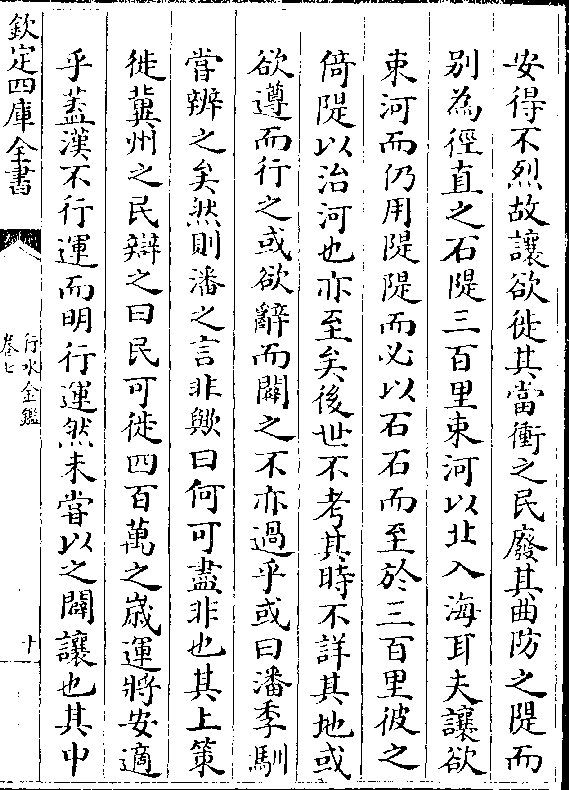 安得不烈故讓欲徙其當衝之民廢其曲防之隄而
别為徑直之石隄三百里束河以北入海耳夫讓欲
束河而仍用隄隄而必以石石而至於三百里彼之
倚隄以治河也亦至矣後世不考其時不詳其地或
欲遵而行之或欲辭而闢之不亦過乎或曰潘季馴
嘗辨之矣然則潘之言非歟曰何可盡非也其上策
徙冀州之民辯之曰民可徙四百萬之歲運將安適
乎蓋漢不行運而明行運然未嘗以之闢讓也其中
欽定四庫全書
行水金鑑
卷七
十